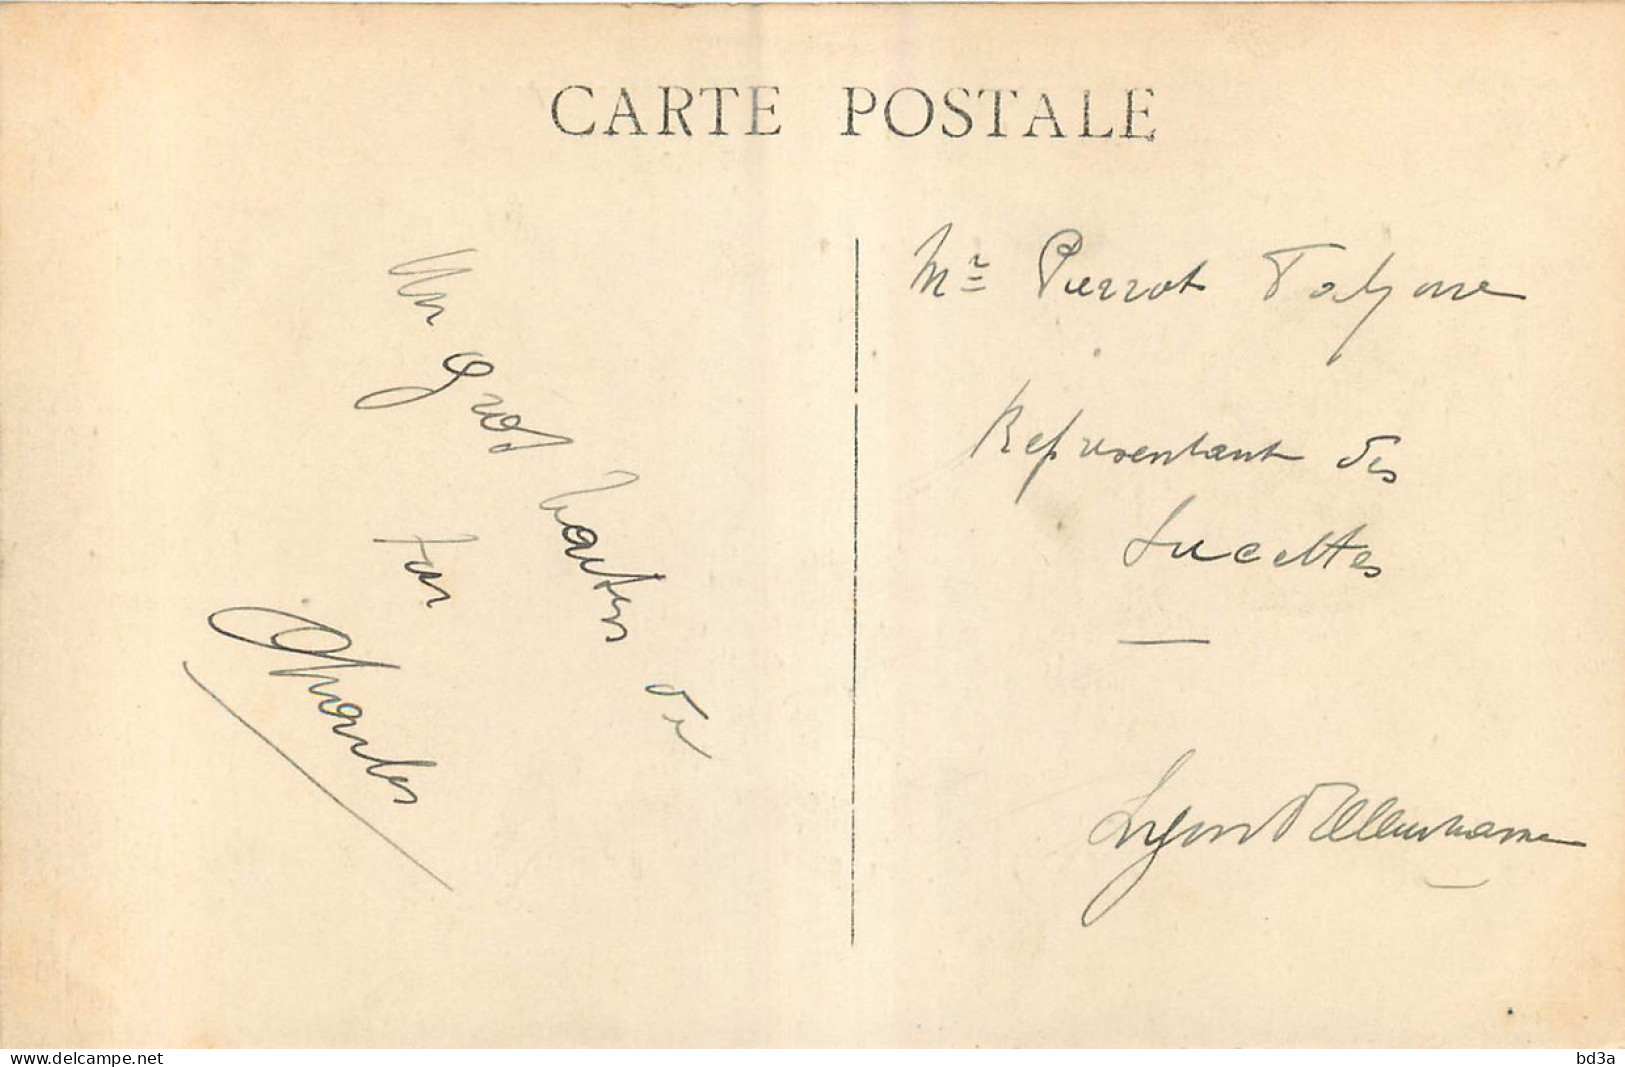 CARTE POSTALE
Un gros
de
ton
Charles
Mr Pierrot
Representant des
Sucettes
Lyon
www.delcampe.net
bd3a